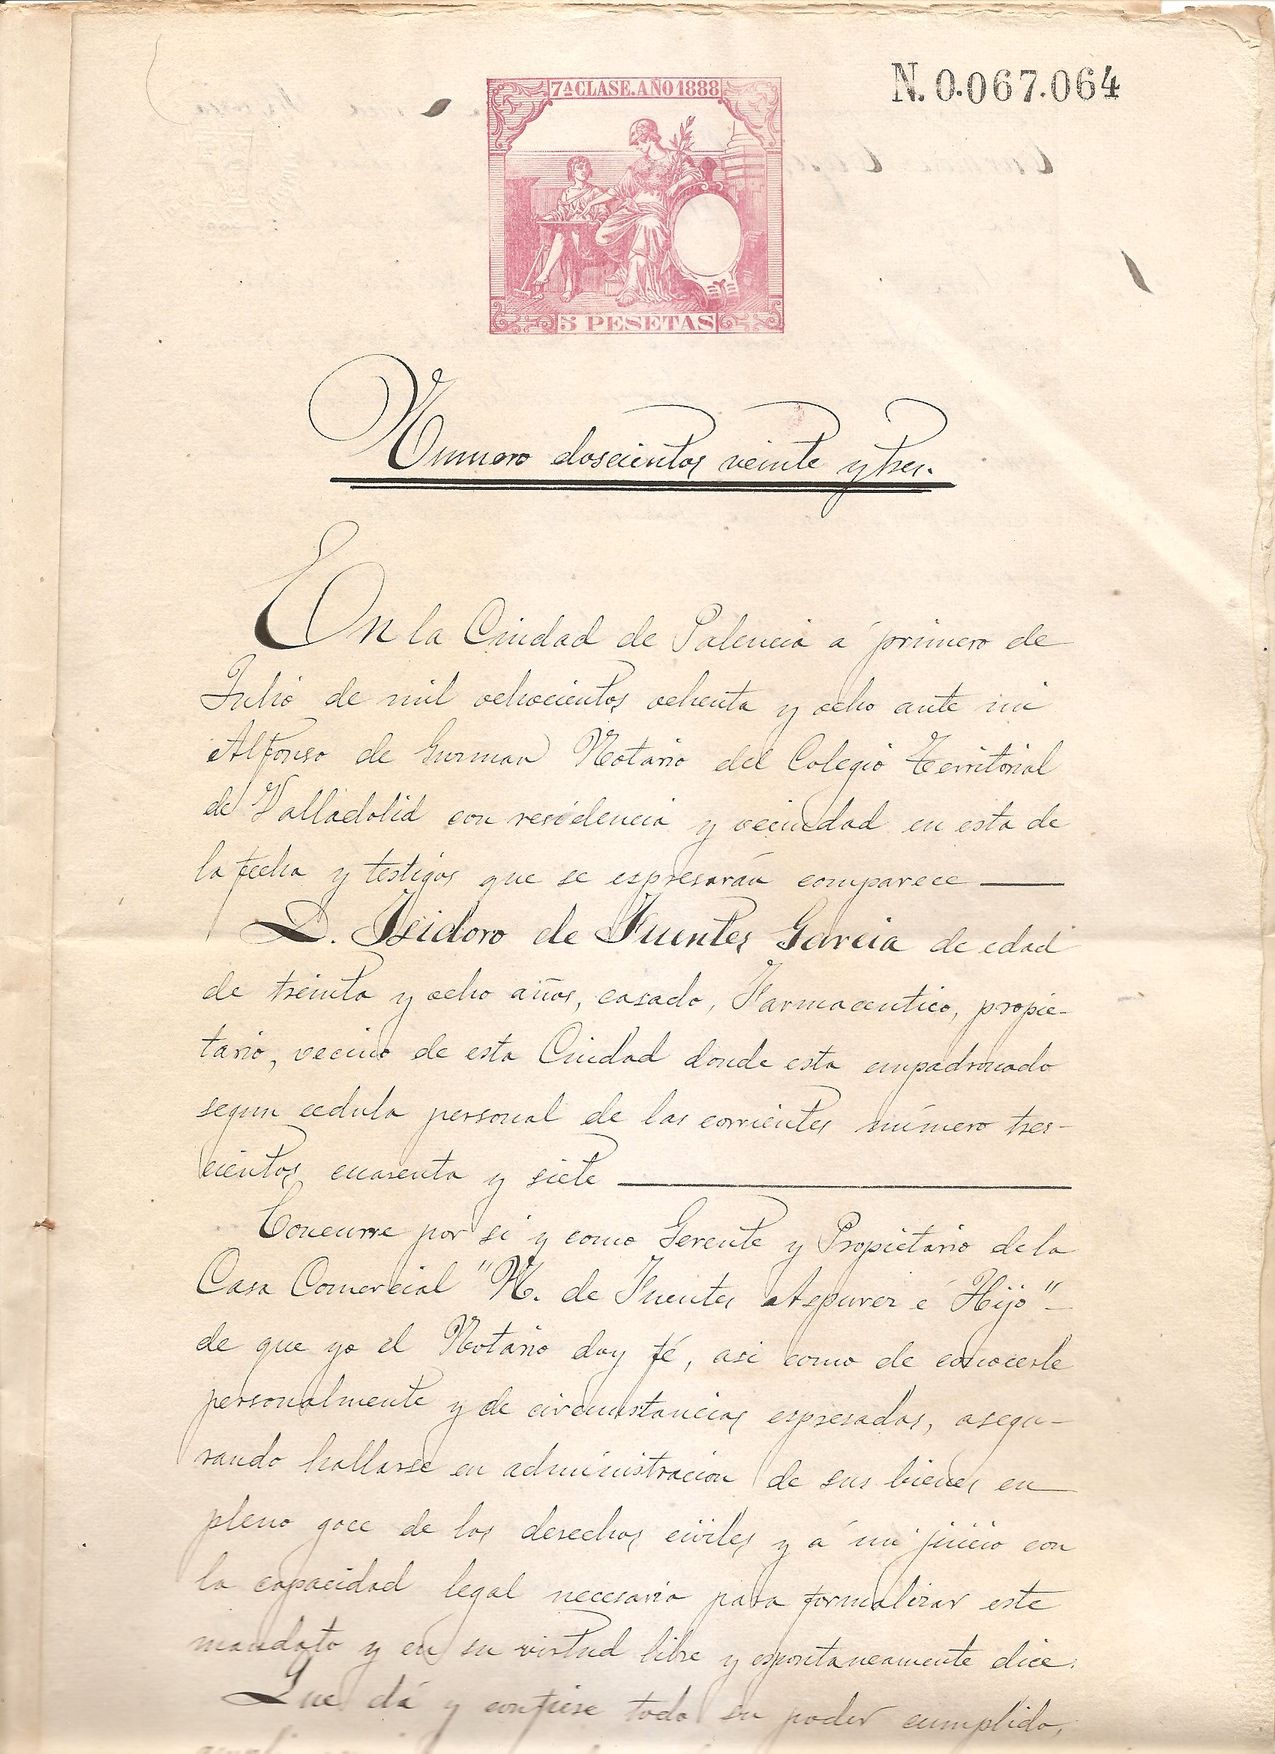 7ª CLASE. AÑO 1888
N. 0.067.064
5 PESETAS
Numero doscientos veinte y tres.
En la Ciudad de Palencia a primero de
Julio de mil ochocientos ochenta y ocho ante mi
Alfonso de Guzman Notario del Colegio Territorial
de Valladolid con residencia y vecindad en esta de
la fecha y testigos que se espresarán comparece
D. Isidoro de Fuentes Garcia de edad
de treinta y ocho años, casado, Farmaceutico, propie-
tario, vecino de esta Ciudad donde esta empadronado
segun cedula personal de las corrientes número tres-
cientos cuarenta y siete
Concurre por si y como Gerente y Propietario de la
Casa Comercial "N. de Fuentes Aspurez é Hijo"-
de que yo el Notario doy fé, asi como de conocerle
personalmente y de circunstancias espresadas, asegu-
rando hallarse en administracion de sus bienes en
pleno goce de los derechos civiles y á mi juicio con
la capacidad legal necesaria para formalizar este
mandato y en su virtud libre y espontaneamente dice:
Que dá y confiere todo su poder cumplido,